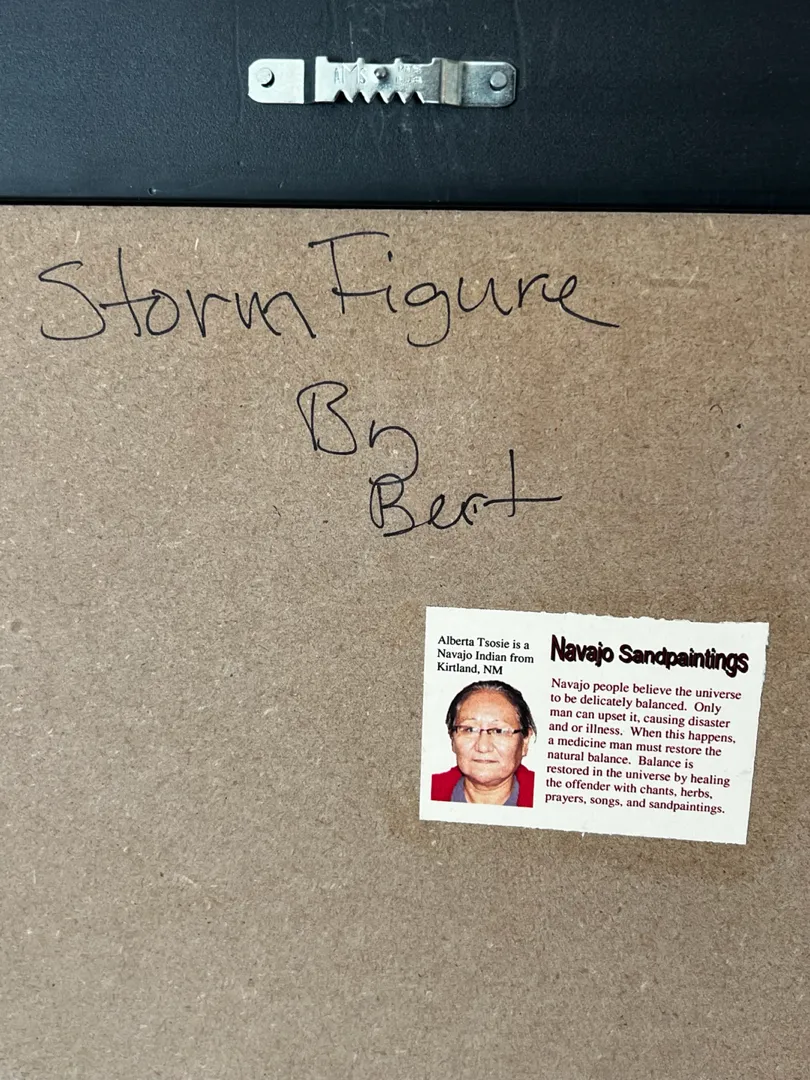 Storm Figure
By
Bert
Alberta Tsosie is a
Navajo Indian from
Kirtland, NM
Navajo Sandpaintings
Navajo people believe the universe
to be delicately balanced. Only
man can upset it, causing disaster
and or illness. When this happens,
a medicine man must restore the
natural balance. Balance is
restored in the universe by healing
the offender with chants, herbs,
prayers, songs, and sandpaintings.